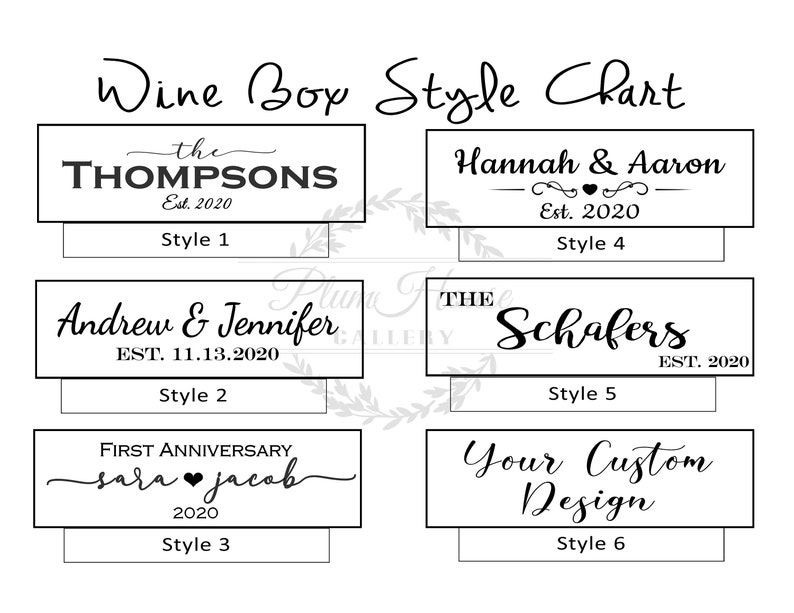 Wine Box Style Chart
the
THOMPSONS
Est. 2020
Style 1
Hannah & Aaron
Est. 2020
Style 4
Andrew & Jennifer
EST. 11.13.2020
Style 2
THE
Schafers
EST. 2020
Style 5
FIRST ANNIVERSARY
sara ❤ jacob
2020
Style 3
Your Custom
Design
Style 6
Plum House
GALLERY